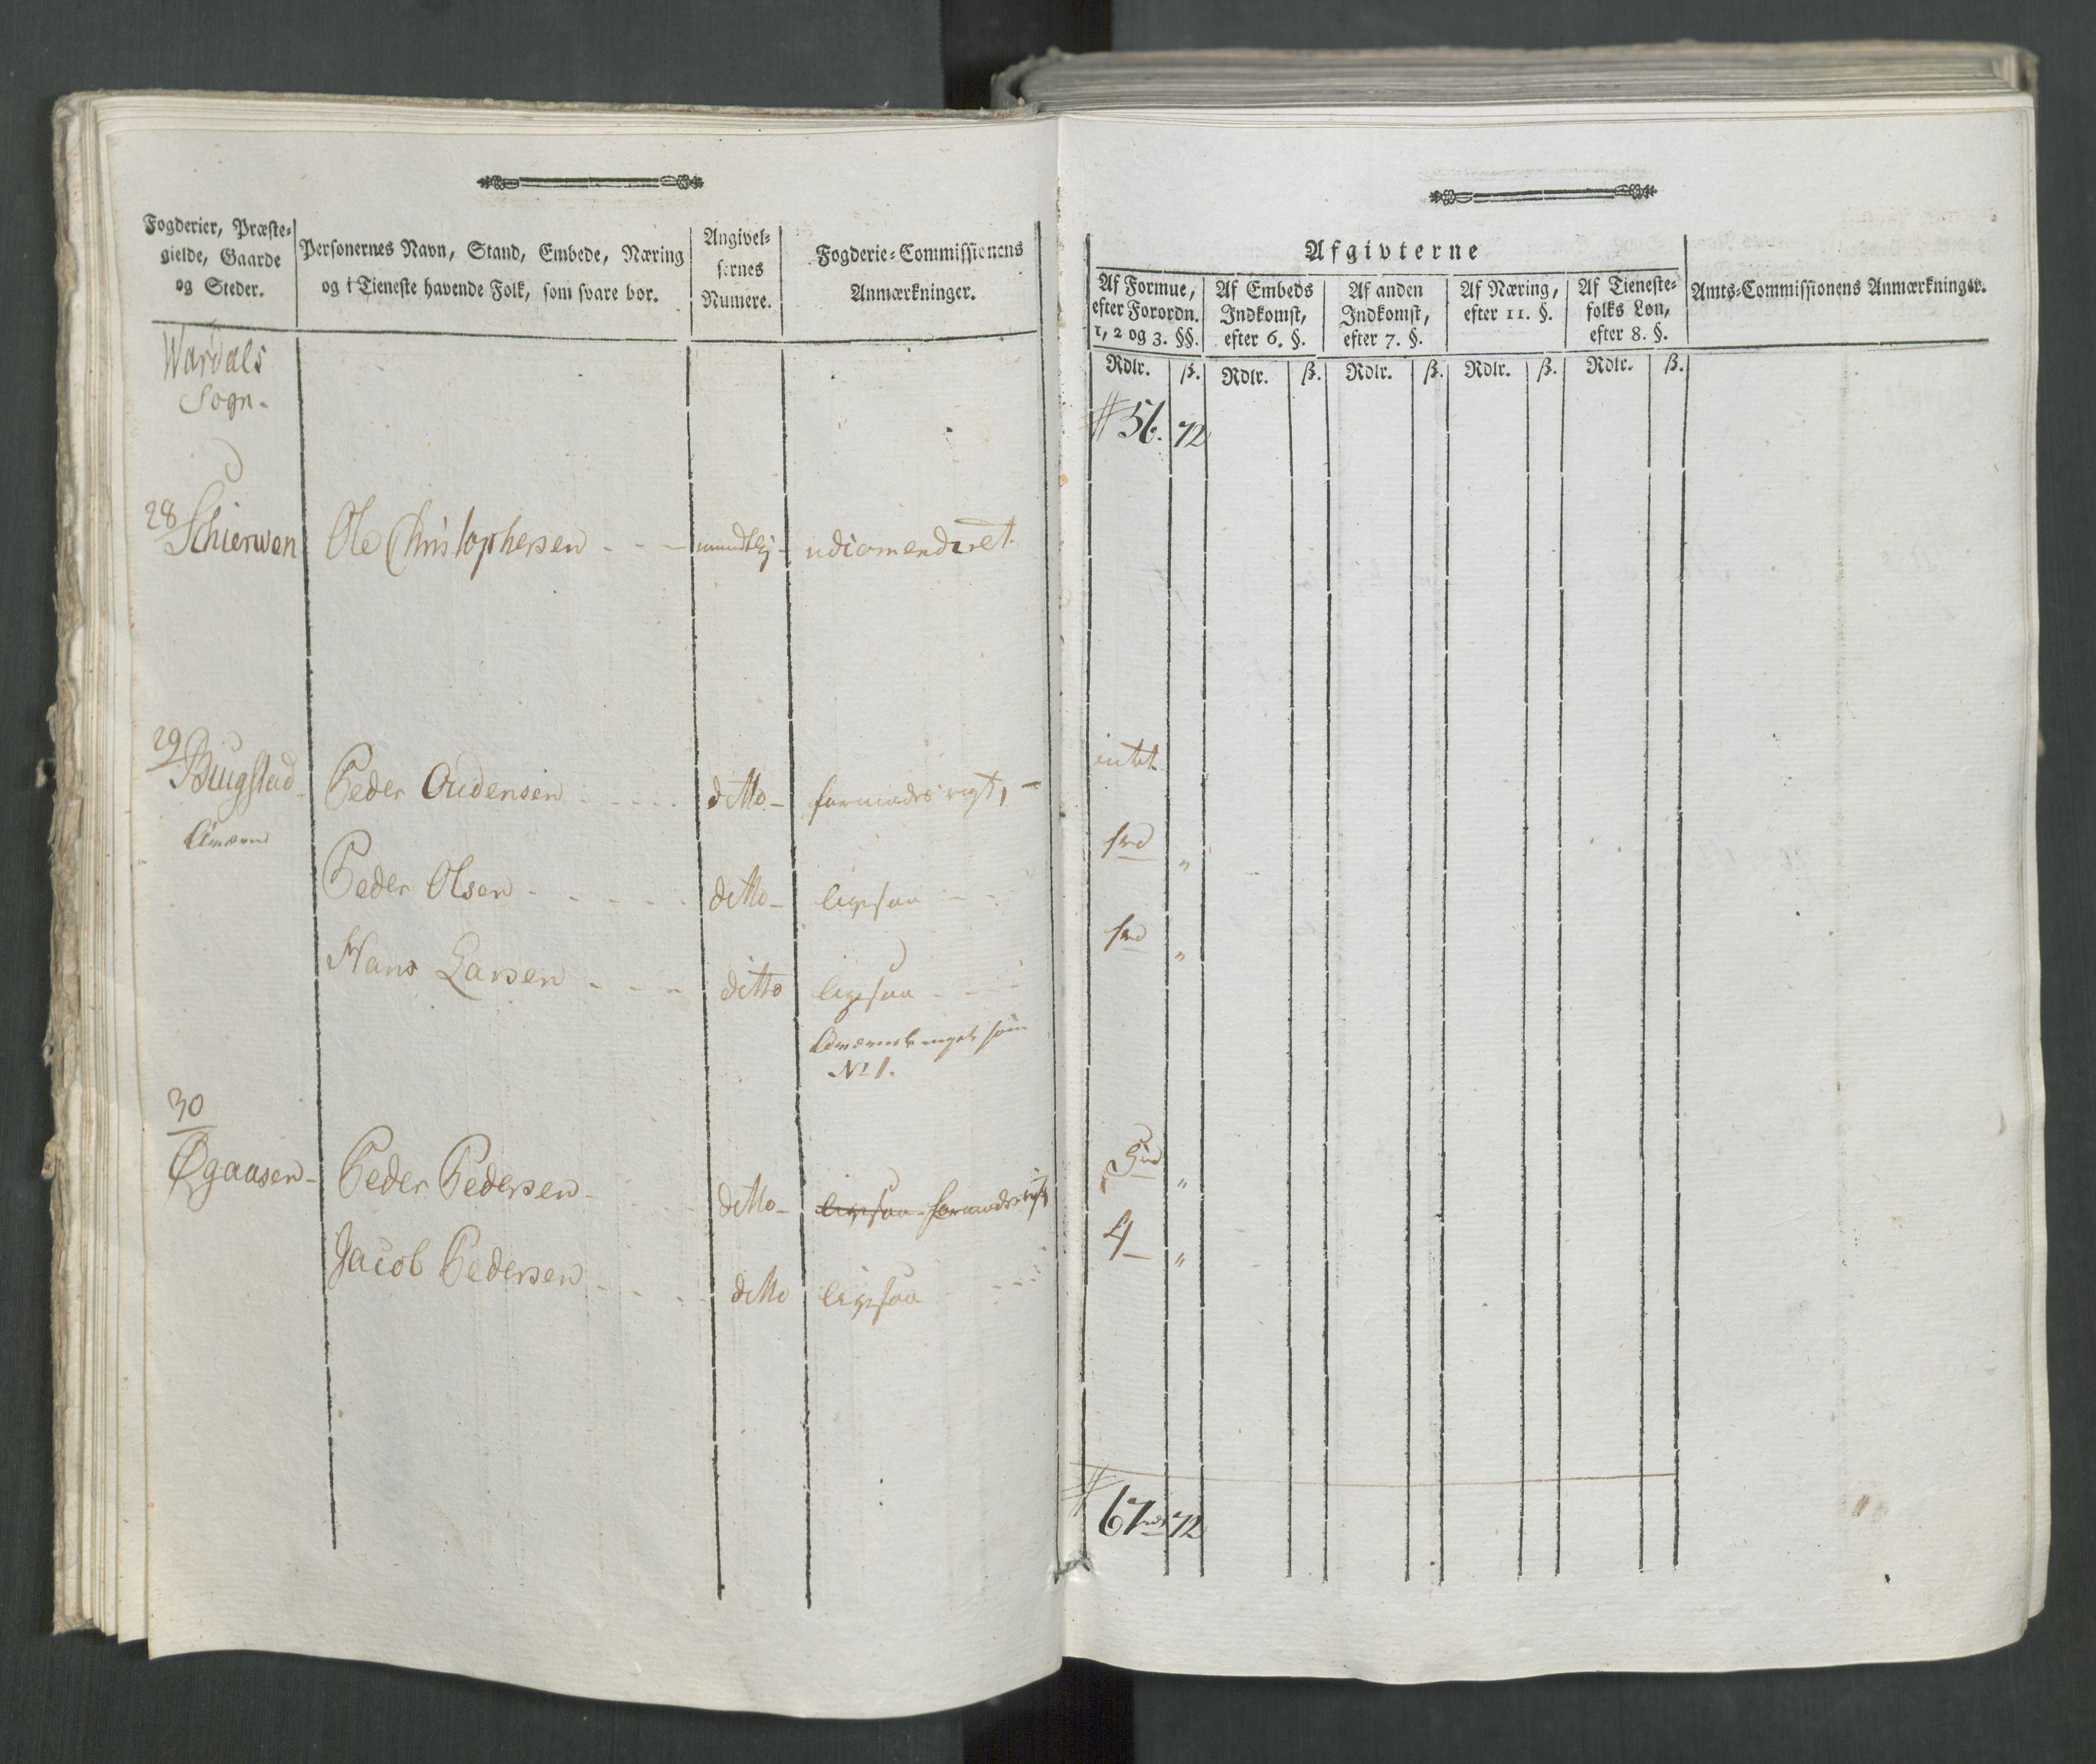 Fogderier, Præste-
gielde, Gaarde
og Steder.
Personernes Navn, Stand, Embede, Næring
og i Tieneste havende Folk, som svare bør.
Angivel-
sernes
Numere.
Fogderie-Commissionens
Anmærkninger.
Wardals
Sogn.
28
Schierwen Ole Christophersen - - - mundtlig - udiomenderet
29
Peder Oudensen - - - - ditto - formodes rigt, -
Peder Olsen - - - - - ditto - ligesaa - -
Hans Larsen - - - ditto ligesaa - - -
som
No 1.
30
Øgaasen - Peder Pedersen - ditto - ligesaa formodes rigt,
Jacob Pedersen - - - - ditto ligesaa - - -
Afgivterne
Af Formue,
efter Forordn.
1, 2 og 3. §§.
Af Embeds
Indkomst,
efter 6. §.
Af anden
Indkomst,
efter 7. §.
Af Næring,
efter 11. §.
Af Tieneste-
folks Løn,
efter 8. §.
Amts-Commissionens Anmærkninger.
Rdlr. ß. Rdlr. ß. Rdlr. ß. Rdlr. ß. Rdlr. ß.
56. 72
intet
1rd "
1rd "
5rd "
4 - "
67rd 72